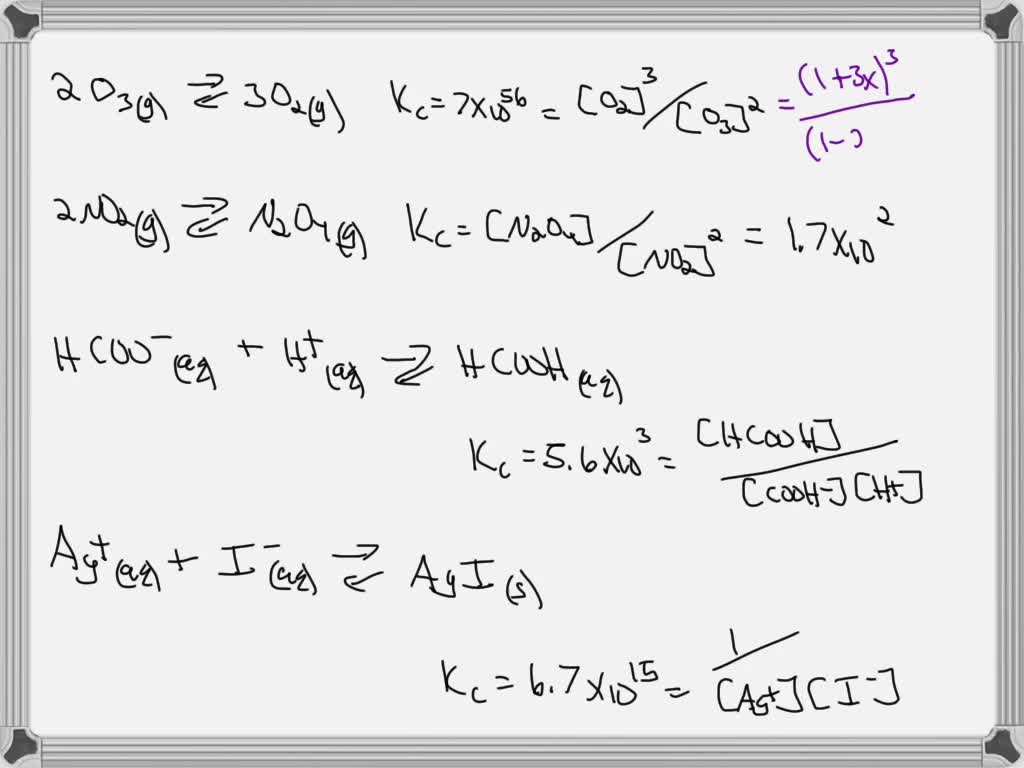 2O₃(g) ⇌ 3O₂(g) Kc = 7x10⁵⁶ = [O₂]³/[O₃]² = (1+3x)³/(1-)
2NO₂(g) ⇌ N₂O₄(g) Kc = [N₂O₄]/[NO₂]² = 1.7x10²
HCOO⁻(aq) + H⁺(aq) ⇌ HCOOH(aq)
Kc = 5.6x10³ = [HCOOH]/[COOH⁻][H+]
Ag⁺(aq) + I⁻(aq) ⇌ AgI(s)
Kc = 6.7x10¹⁵ = 1/[Ag+][I⁻]